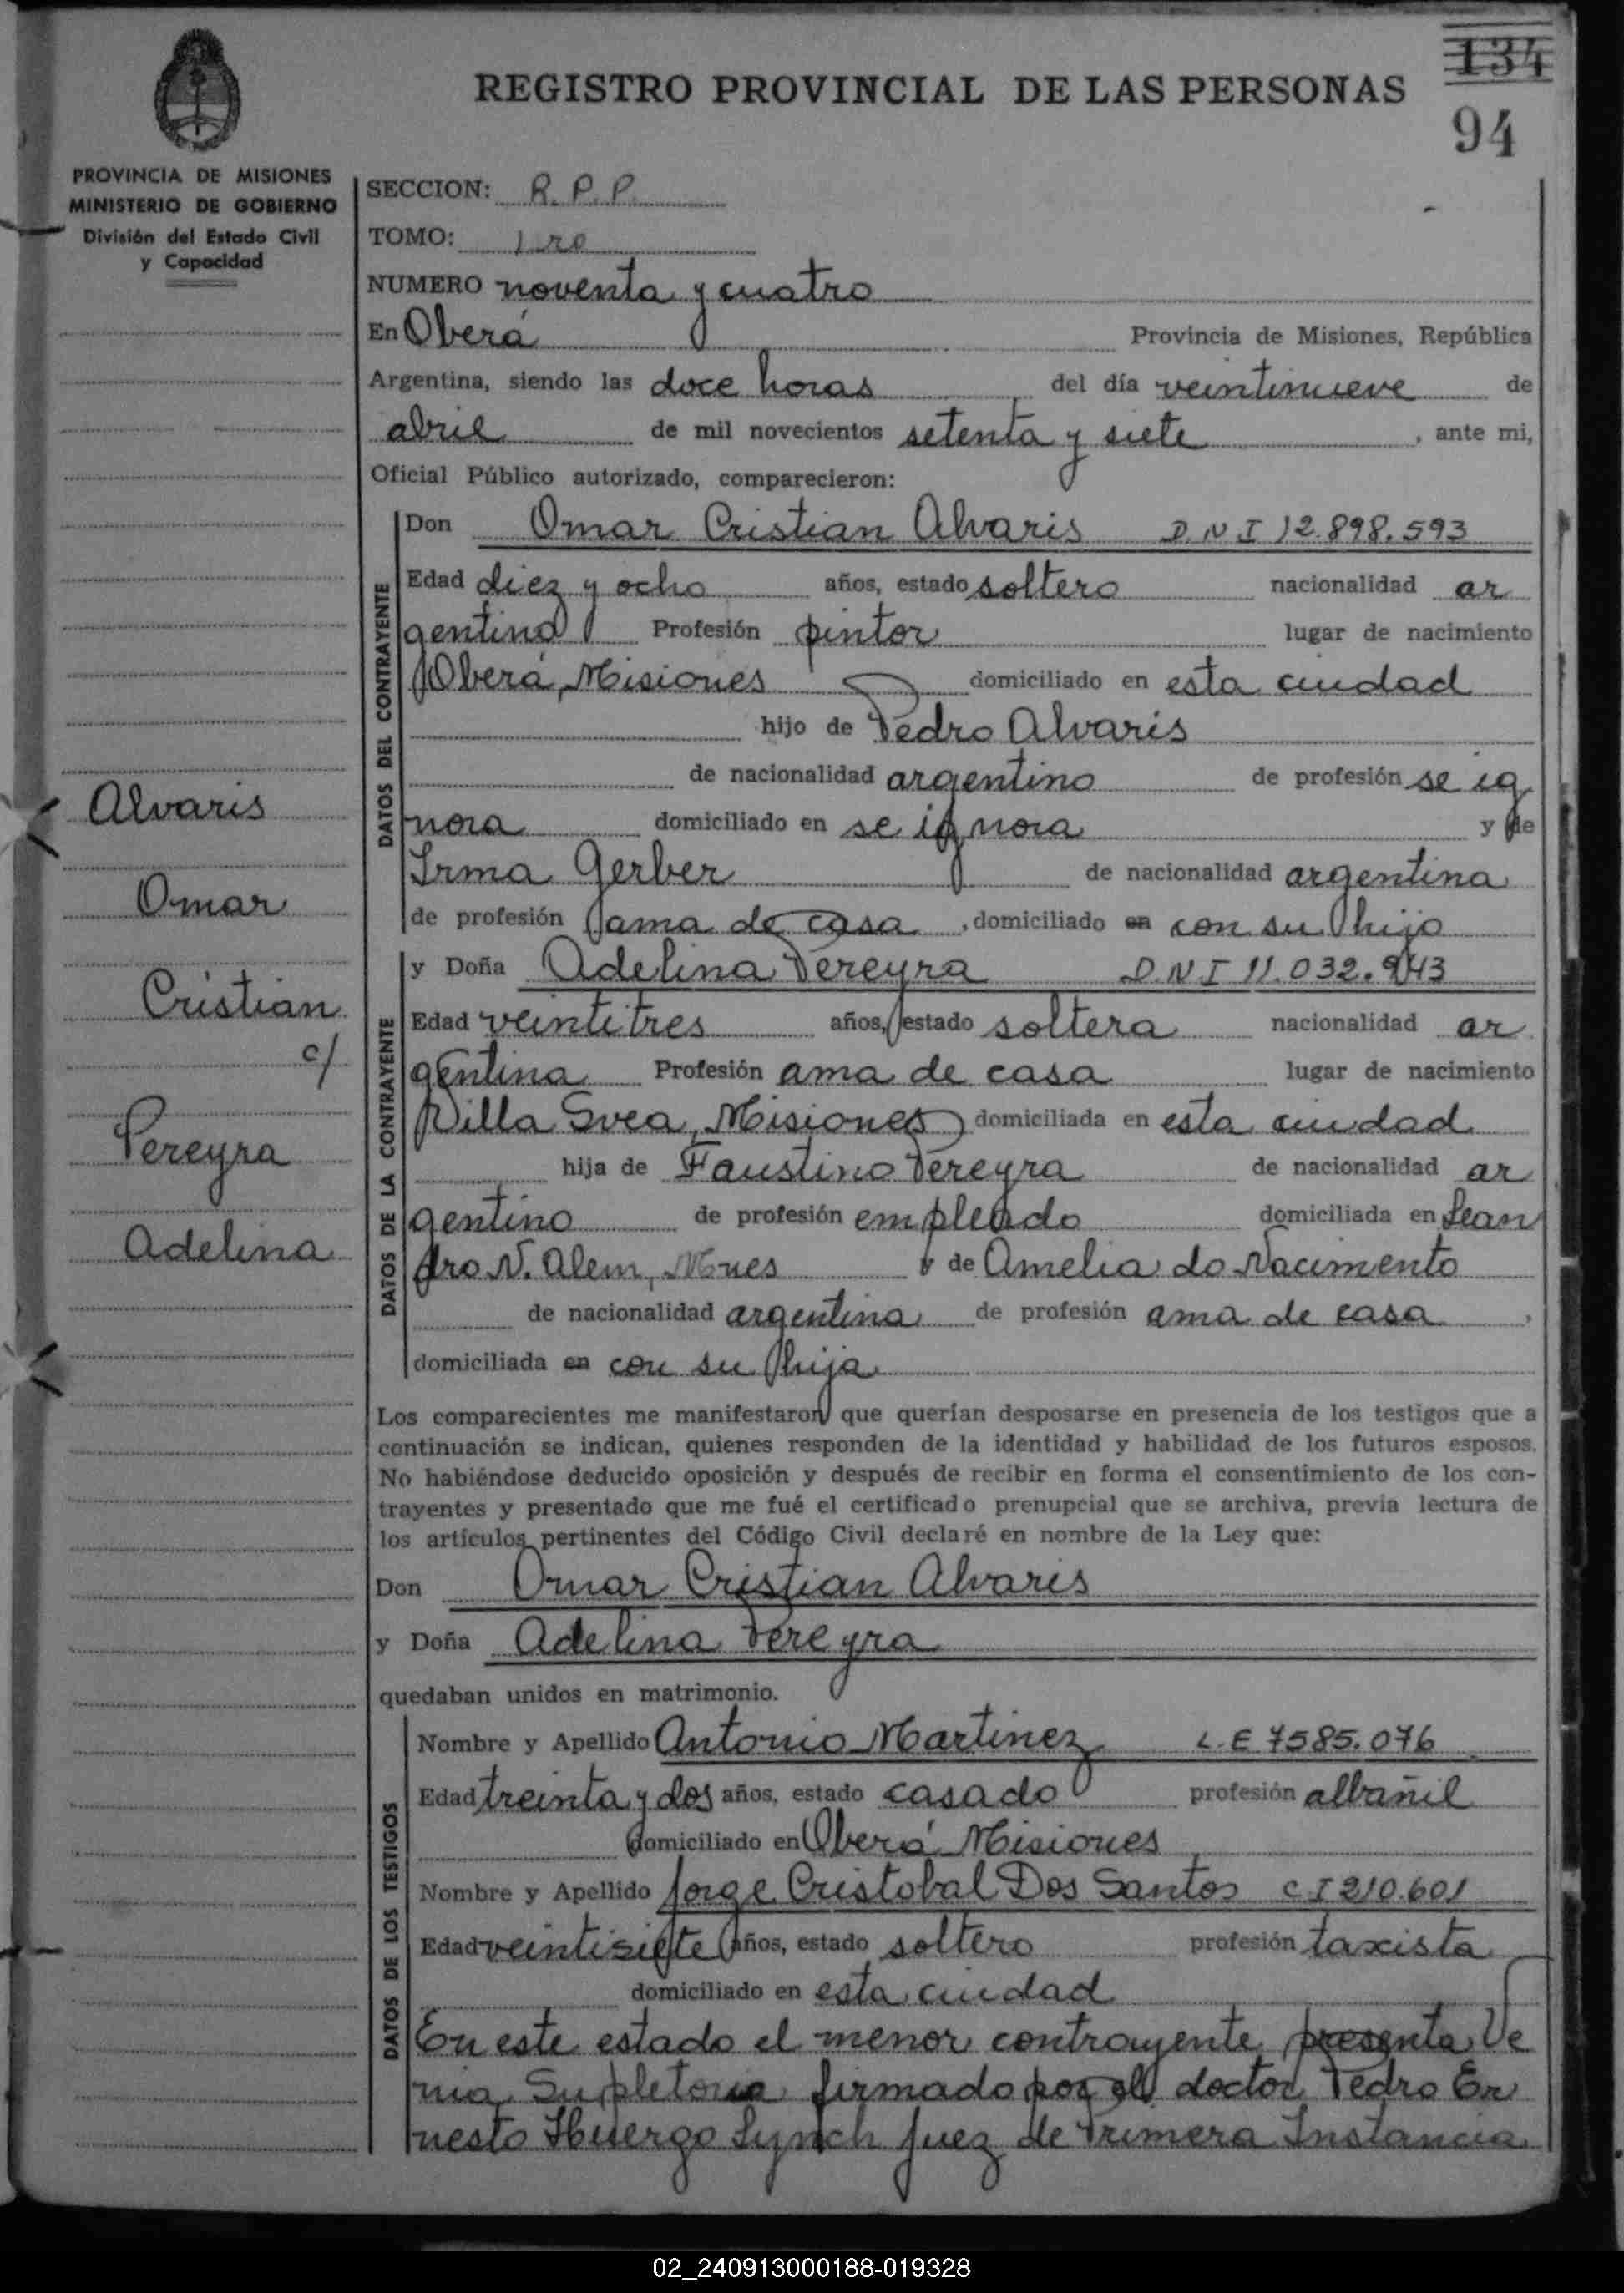 134
REGISTRO PROVINCIAL DE LAS PERSONAS
94
PROVINCIA DE MISIONES
MINISTERIO DE GOBIERNO
División del Estado Civil
y Capacidad
SECCION: R. P. P.
TOMO: 1 ro
NUMERO noventa y cuatro
En Oberá Provincia de Misiones, República
Argentina, siendo las doce horas del día veintinueve de
abril de mil novecientos setenta y siete, ante mi,
Oficial Público autorizado, comparecieron:
DATOS DEL CONTRAYENTE
Don Omar Cristian Alvaris D.N.I 12.898.593
Edad diez y ocho años, estado soltero nacionalidad ar
gentina Profesión pintor lugar de nacimiento
Oberá, Misiones domiciliado en esta ciudad
hijo de Pedro Alvaris
de nacionalidad argentino de profesión se ig
nora domiciliado en se ignora y de
Irma Gerber de nacionalidad argentina
de profesión ama de casa, domiciliado en con su hijo
DATOS DE LA CONTRAYENTE
y Doña Adelina Pereyra D.N.I 11.032.943
Edad veintitres años, estado soltera nacionalidad ar
gentina Profesión ama de casa lugar de nacimiento
Villa Svea, Misiones domiciliada en esta ciudad
hija de Faustino Pereyra de nacionalidad ar
gentino de profesión empleado domiciliada en Lean
dro N. Alem, Mnes y de Amelia do Nacimento
de nacionalidad argentina de profesión ama de casa,
domiciliada en con su hija
Los comparecientes me manifestaron que querían desposarse en presencia de los testigos que a
continuación se indican, quienes responden de la identidad y habilidad de los futuros esposos.
No habiéndose deducido oposición y después de recibir en forma el consentimiento de los con-
trayentes y presentado que me fué el certificado prenupcial que se archiva, previa lectura de
los artículos pertinentes del Código Civil declaré en nombre de la Ley que:
Don Omar Cristian Alvaris
y Doña Adelina Pereyra
quedaban unidos en matrimonio.
DATOS DE LOS TESTIGOS
Nombre y Apellido Antonio Martinez L.E 7585.076
Edad treinta y dos años, estado casado profesión albañil
domiciliado en Oberá Misiones
Nombre y Apellido Jorge Cristobal Dos Santos C I 210.601
Edad veintisiete años, estado soltero profesión taxista
domiciliado en esta ciudad
En este estado el menor contrayente presenta Ve
nia Supletoria firmado por el doctor Pedro Er
nesto Huergo Lynch Juez de Primera Instancia
Alvaris
Omar
Cristian
c/
Pereyra
Adelina
02_240913000188-019328